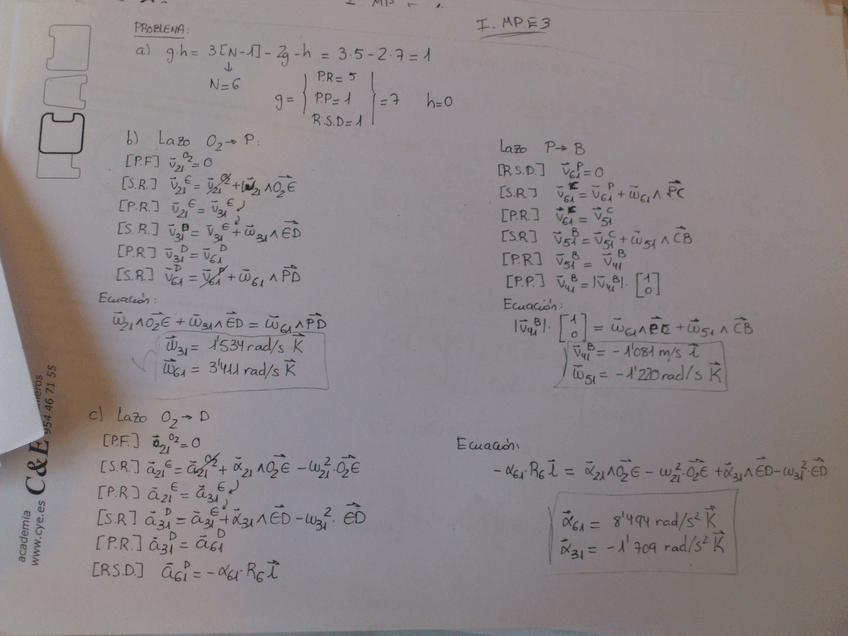 I. MPE3
PROBLEMA:
a) gh = 3[N-1] - 2g - h = 3·5 - 2·7 = 1
↓
N=6
g = { P.R = 5
P.P = 1
R.S.D = 1 } = 7 h=0
b) Lazo O₂ → P:
[P.F] v⃗₂₁^O₂ = 0
[S.R.] v⃗₂₁^E = v⃗₂₁^O₂ + ω⃗₂₁ ∧ O₂E⃗
[P.R.] v⃗₂₁^E = v⃗₃₁^E
[S.R.] v⃗₃₁^D = v⃗₃₁^E + ω⃗₃₁ ∧ ED⃗
[P.R] v⃗₃₁^D = v⃗₆₁^D
[S.R.] v⃗₆₁^D = v⃗₆₁^P + ω⃗₆₁ ∧ PD⃗
Ecuación:
ω⃗₂₁ ∧ O₂E⃗ + ω⃗₃₁ ∧ ED⃗ = ω⃗₆₁ ∧ PD⃗
ω⃗₃₁ = 1'534 rad/s K⃗
ω⃗₆₁ = 3'411 rad/s K⃗
Lazo P → B
[R.S.D.] v⃗₆₁^P = 0
[S.R] v⃗₆₁^C = v⃗₆₁^P + ω⃗₆₁ ∧ PC⃗
[P.R] v⃗₆₁^C = v⃗₅₁^C
[S.R] v⃗₅₁^B = v⃗₅₁^C + ω⃗₅₁ ∧ CB⃗
[P.R] v⃗₅₁^B = v⃗₄₁^B
[P.P.] v⃗₄₁^B = |v⃗₄₁^B| · [1 0]
Ecuación:
|v⃗₄₁^B| · [1 0] = ω⃗₆₁ ∧ PC⃗ + ω⃗₅₁ ∧ CB⃗
v⃗₄₁^B = -1'081 m/s i⃗
ω⃗₅₁ = -1'220 rad/s K⃗
c) Lazo O₂ → D
[P.F.] a⃗₂₁^O₂ = 0
[S.R.] a⃗₂₁^E = a⃗₂₁^O₂ + α⃗₂₁ ∧ O₂E⃗ - ω₂₁² · O₂E⃗
[P.R] a⃗₂₁^E = a⃗₃₁^E
[S.R] a⃗₃₁^D = a⃗₃₁^E + α⃗₃₁ ∧ ED⃗ - ω₃₁² · ED⃗
[P.R.] a⃗₃₁^D = a⃗₆₁^D
[R.S.D.] a⃗₆₁^D = -α₆₁ · R₆ i⃗
Ecuación:
-α₆₁ · R₆ i⃗ = α⃗₂₁ ∧ O₂E⃗ - ω₂₁² · O₂E⃗ + α⃗₃₁ ∧ ED⃗ - ω₃₁² · ED⃗
α⃗₆₁ = 8'494 rad/s² K⃗
α⃗₃₁ = -1'709 rad/s² K⃗
academia
www.cye.es
C&E
954 46 71 55